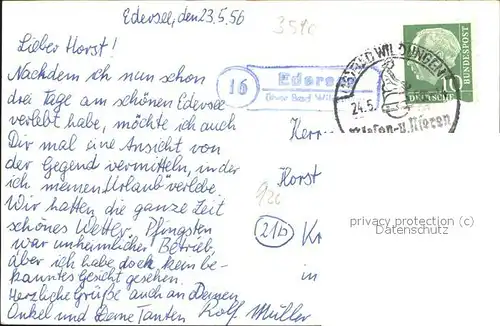 Edersee, den 23.5.56
3590
Lieber Horst!
Nachdem ich nun schon
drei Tage am schönen Edersee
verlebt habe, möchte ich auch
Dir mal eine Ansicht von
der Gegend vermitteln, in der
ich meinen Urlaub verlebe.
Wir hatten die ganze Zeit
schönes Wetter, Pfingsten
war unheimlicher Betrieb,
aber ich habe doch kein be-
kanntes Gesicht gesehen.
Herzliche Grüße auch an Deinen
Onkel und Deine Tanten Rolf Müller
16
Edersee
über Bad Wil
BAD WILDUNGEN
24.5.
Blasen-u. Nieren
DEUTSCHE
BUNDESPOST
Herrn
Horst
21b
Kr
in
privacy protection (c)
Datenschutz